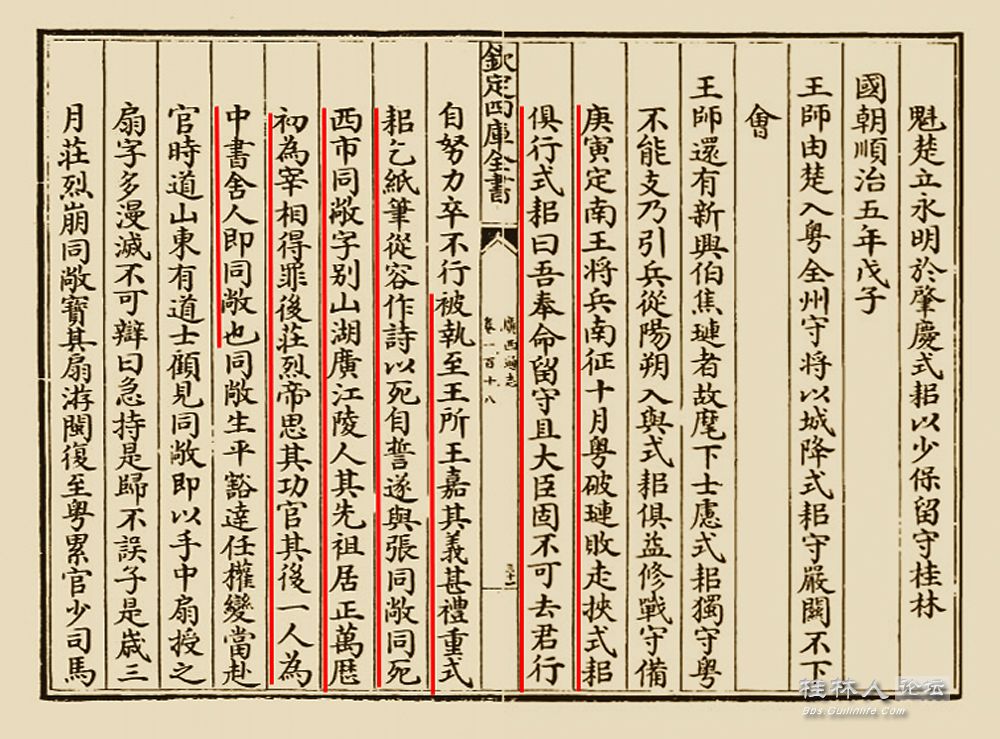 魁楚立永明於肇慶式耜以少保留守桂林
國朝順治五年戊子
王師由楚入粤全州守將以城降式耜守嚴關不下
會
王師還有新興伯焦璉者故麾下士慮式耜獨守粤
不能支乃引兵從陽朔入與式耜俱益修戰守備
庚寅定南王將兵南征十月粤破璉敗走挾式耜
俱行式耜曰吾奉命留守且大臣固不可去君行
欽定四庫全書
廣西通志
卷一百十八
三十二
自努力卒不行被執至王所王嘉其義甚禮重式
耜乞紙筆從容作詩以死自誓遂與張同敞同死
西市同敞字别山湖廣江陵人其先祖居正萬厯
初為宰相得罪後莊烈帝思其功官其後一人為
中書舍人即同敞也同敞生平豁達任權變當赴
官時道山東有道士顧見同敞即以手中扇授之
扇字多漫滅不可辯曰急持是歸不誤子是歲三
月莊烈崩同敞寶其扇游閩復至粤累官少司馬
桂林人论坛
Bbs.Guilinlife.Com